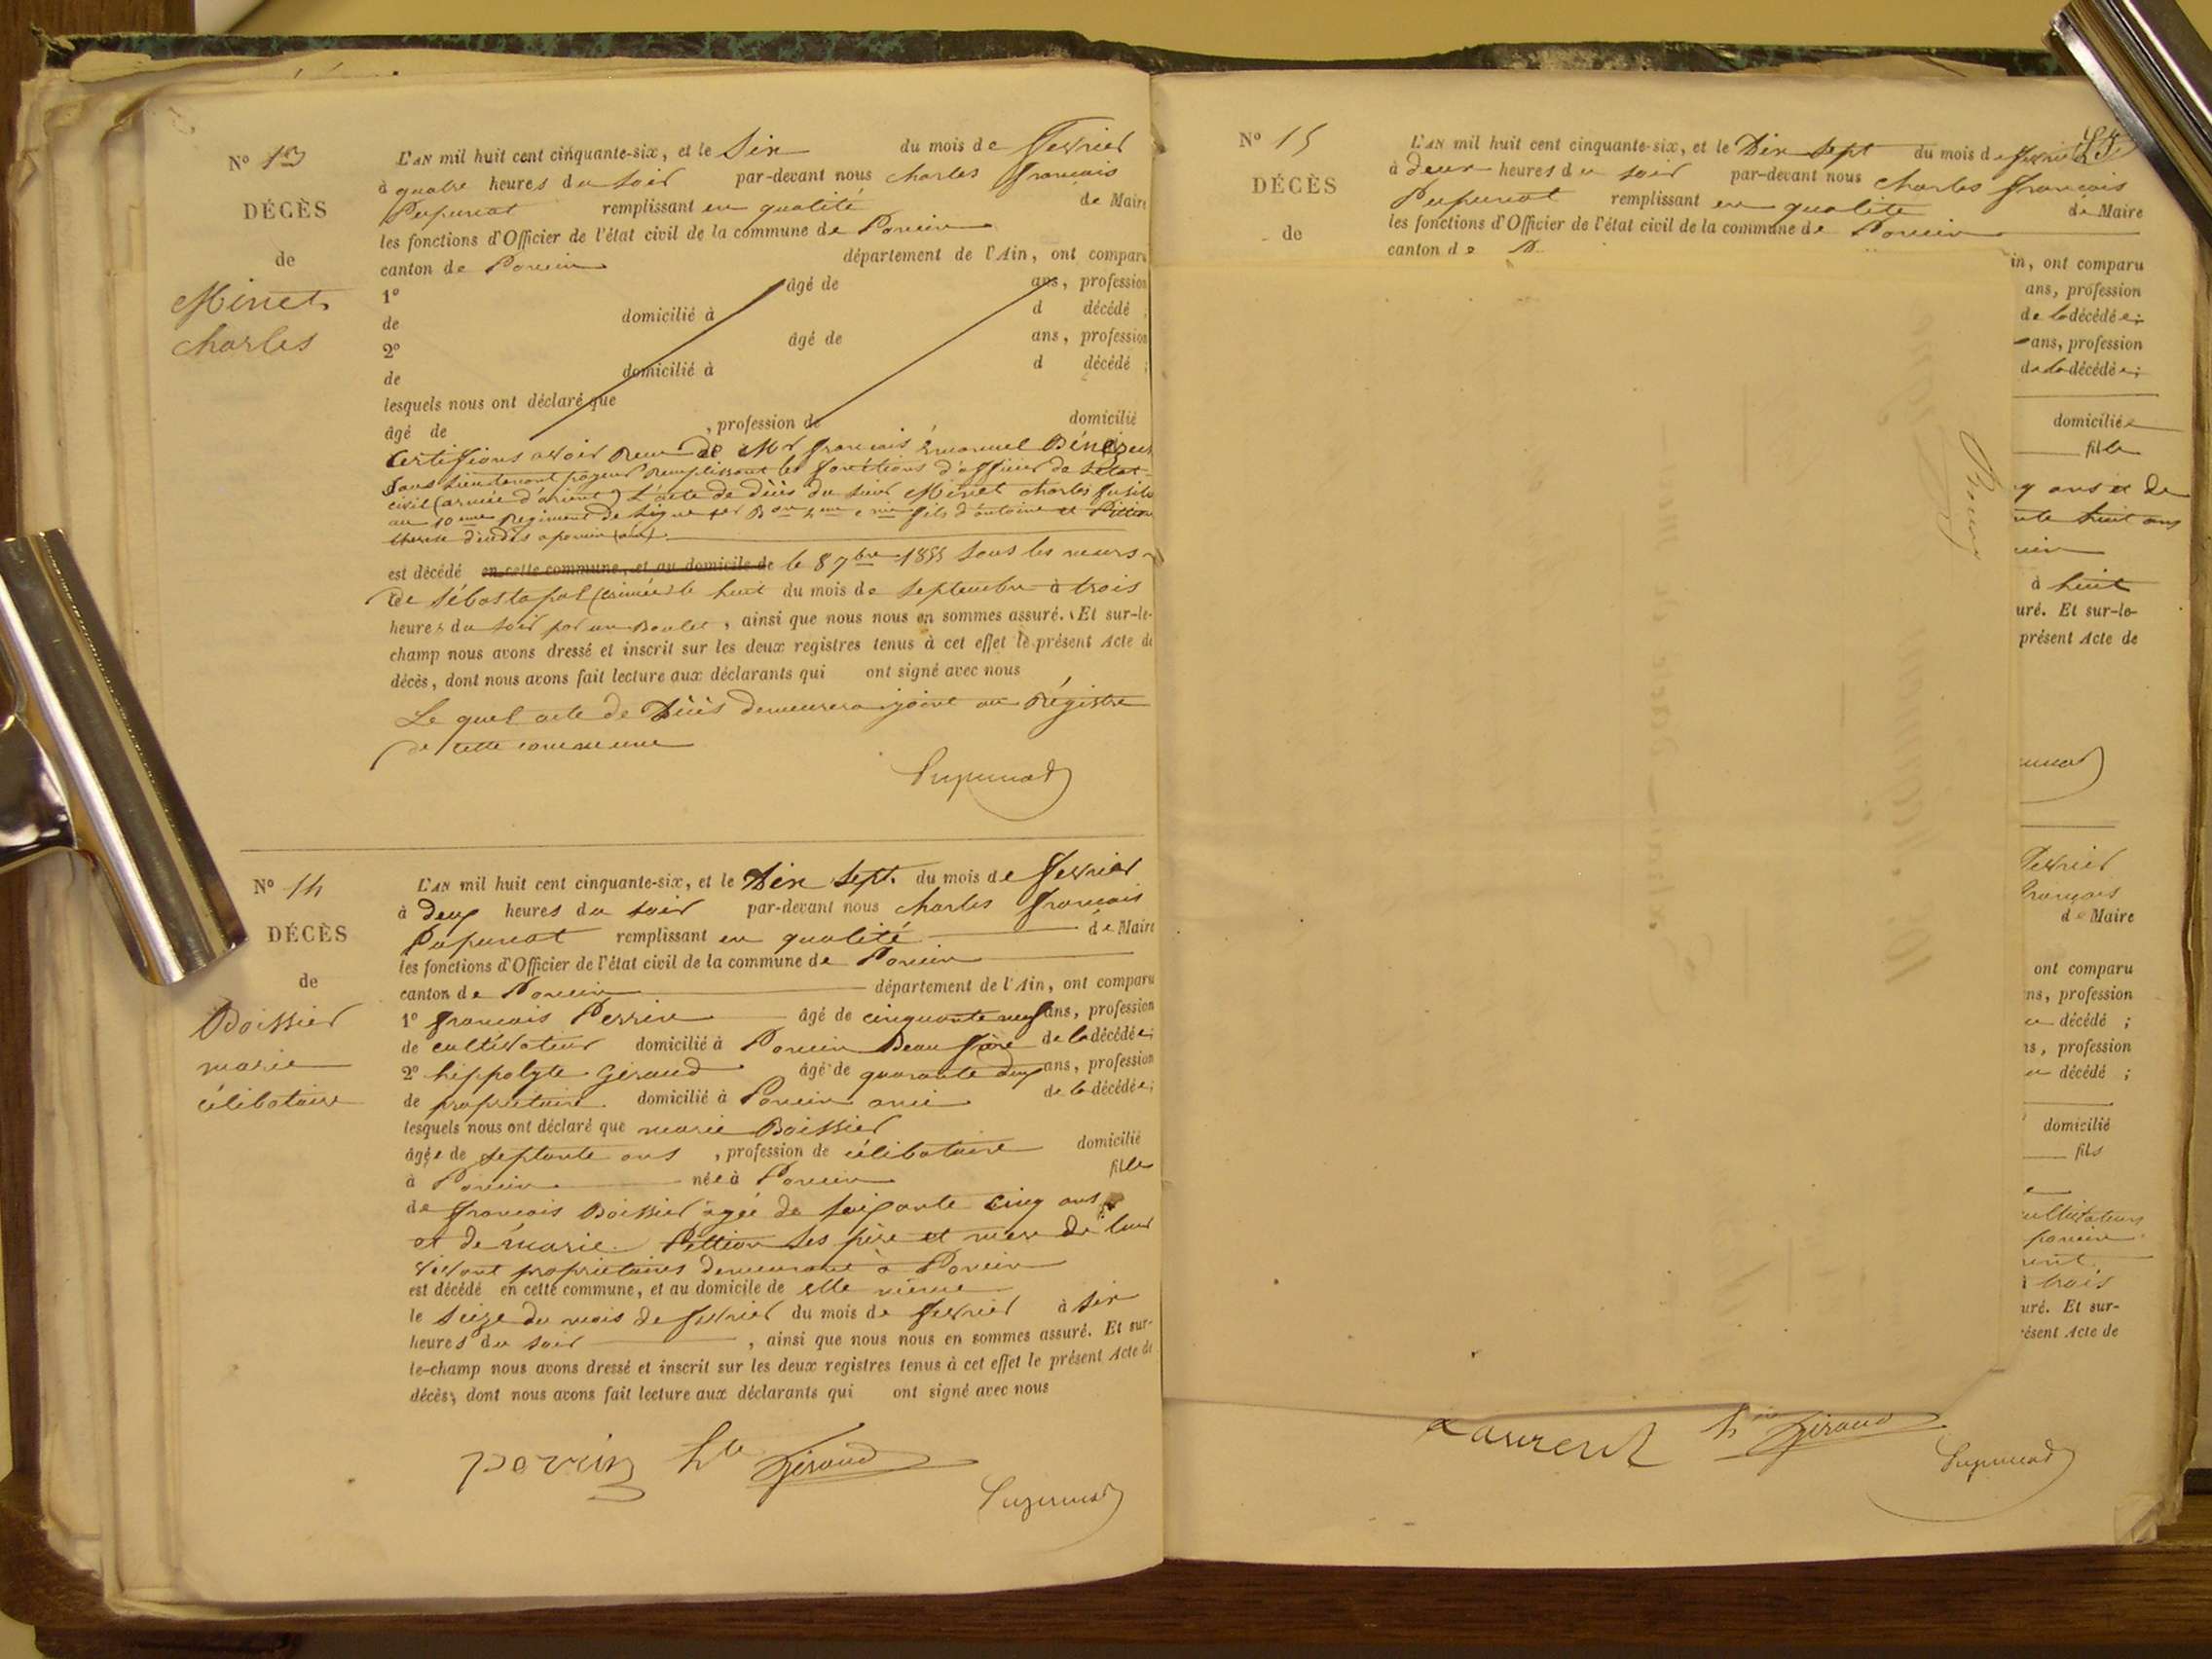 N° 13
DÉCÈS
de
Minet
Charles
L'AN mil huit cent cinquante-six, et le Six du mois de fevrier
à quatre heures du soir par-devant nous Charles françois
Pupunat remplissant en qualité de Maire
les fonctions d'Officier de l'état civil de la commune de Poncin
canton de Poncin département de l'Ain, ont comparu
1° âgé de ans, profession
de domicilié à d décédé ;
2° âgé de ans, profession
de domicilié à d décédé ;
lesquels nous ont déclaré que
âgé de , profession de domicilié
Certifions avoir Recu de Mr françois Emanuel
Sous Lieutenant payeur Remplissant les fonctions d'officier de l'état
civil (armée d'orient) L'acte de décès du sieur Minet Charles fusilier
au 10eme Regiment de Ligne 1er Bon 4eme Cnie fils d'antoine et Pittion
therese
est décédé en cette commune, et au domicile de le 8 7bre 1855 sous les murs
de Sébastopol (crimée) le huit du mois de Septembre à trois
heures du soir par un Boulet, ainsi que nous nous en sommes assuré. Et sur-le-
champ nous avons dressé et inscrit sur les deux registres tenus à cet effet le présent Acte de
décès, dont nous avons fait lecture aux déclarants qui ont signé avec nous
Le quel acte de Décès demeurera joint au Régistre
de cette commune
Pupunat
N° 14
DÉCÈS
de
Boissier
marie
célibataire
L'AN mil huit cent cinquante-six, et le Dix Sept du mois de fevrier
à deux heures du soir par-devant nous Charles françois
Pupunat remplissant en qualité de Maire
les fonctions d'Officier de l'état civil de la commune de Poncin
canton de Poncin département de l'Ain, ont comparu
1° françois Perrin âgé de cinquante neuf ans, profession
de cultivateur domicilié à Poncin Beau frère de la décédée;
2° hippolyte Géraud âgé de quarante deux ans, profession
de propriétaire domicilié à Poncin ami de la décédée;
lesquels nous ont déclaré que marie Boissier
âgée de septante ans, profession de célibataire domicilié
à Poncin née à Poncin fille
de françois Boissier agée de soixante cinq ans
et de marie Pittion ses père et mere de leur
vivant propriétaires demeurant à Poncin
est décédé en cette commune, et au domicile de elle même
le seize du mois de fevrier du mois de fevrier à six
heures du soir, ainsi que nous nous en sommes assuré. Et sur-
le-champ nous avons dressé et inscrit sur les deux registres tenus à cet effet le présent Acte de
décès, dont nous avons fait lecture aux déclarants qui ont signé avec nous
perrin hte Géraud
Pupunat
N° 15
DÉCÈS
de
L'AN mil huit cent cinquante-six, et le Dix Sept du mois de fevrier
à deux heures du soir par-devant nous Charles françois
Pupunat remplissant en qualité de Maire
les fonctions d'Officier de l'état civil de la commune de Poncin
canton de P
in, ont comparu
ans, profession
de la décédée;
ans, profession
de la décédée;
domiciliée
fille
ans et de
huit ans
à huit
uré. Et sur-le-
présent Acte de
fevrier
françois
de Maire
ont comparu
ns, profession
décédé ;
ns, profession
décédé ;
domicilié
fils
cultivateurs
poncin
trois
uré. Et sur-
résent Acte de
Laurent hte Géraud
Pupunat